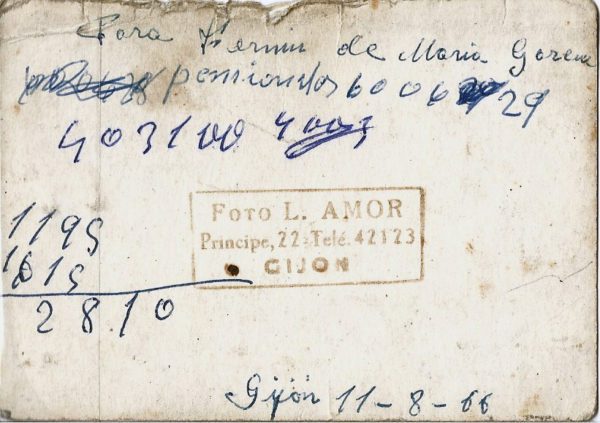 Para Fermin de Maria Gorena
pensionados 6006 29
403100
FOTO L. AMOR
Principe, 22-Telé. 42123
GIJON
1195
1615
2810
Gijón 11-8-66